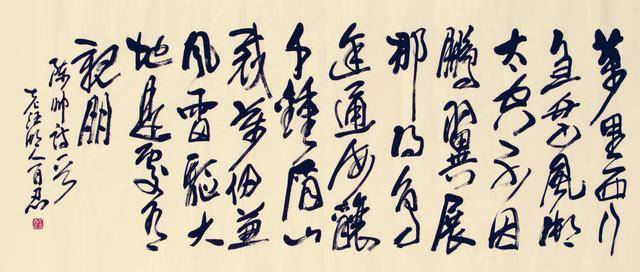 萬里西行
急乘風御
太空不因
鵬翼展
那得鳥
途通海釀
千鍾酒山
裁萬仞葱
風雷驅大
地是處有
親朋
陳帥詩一首